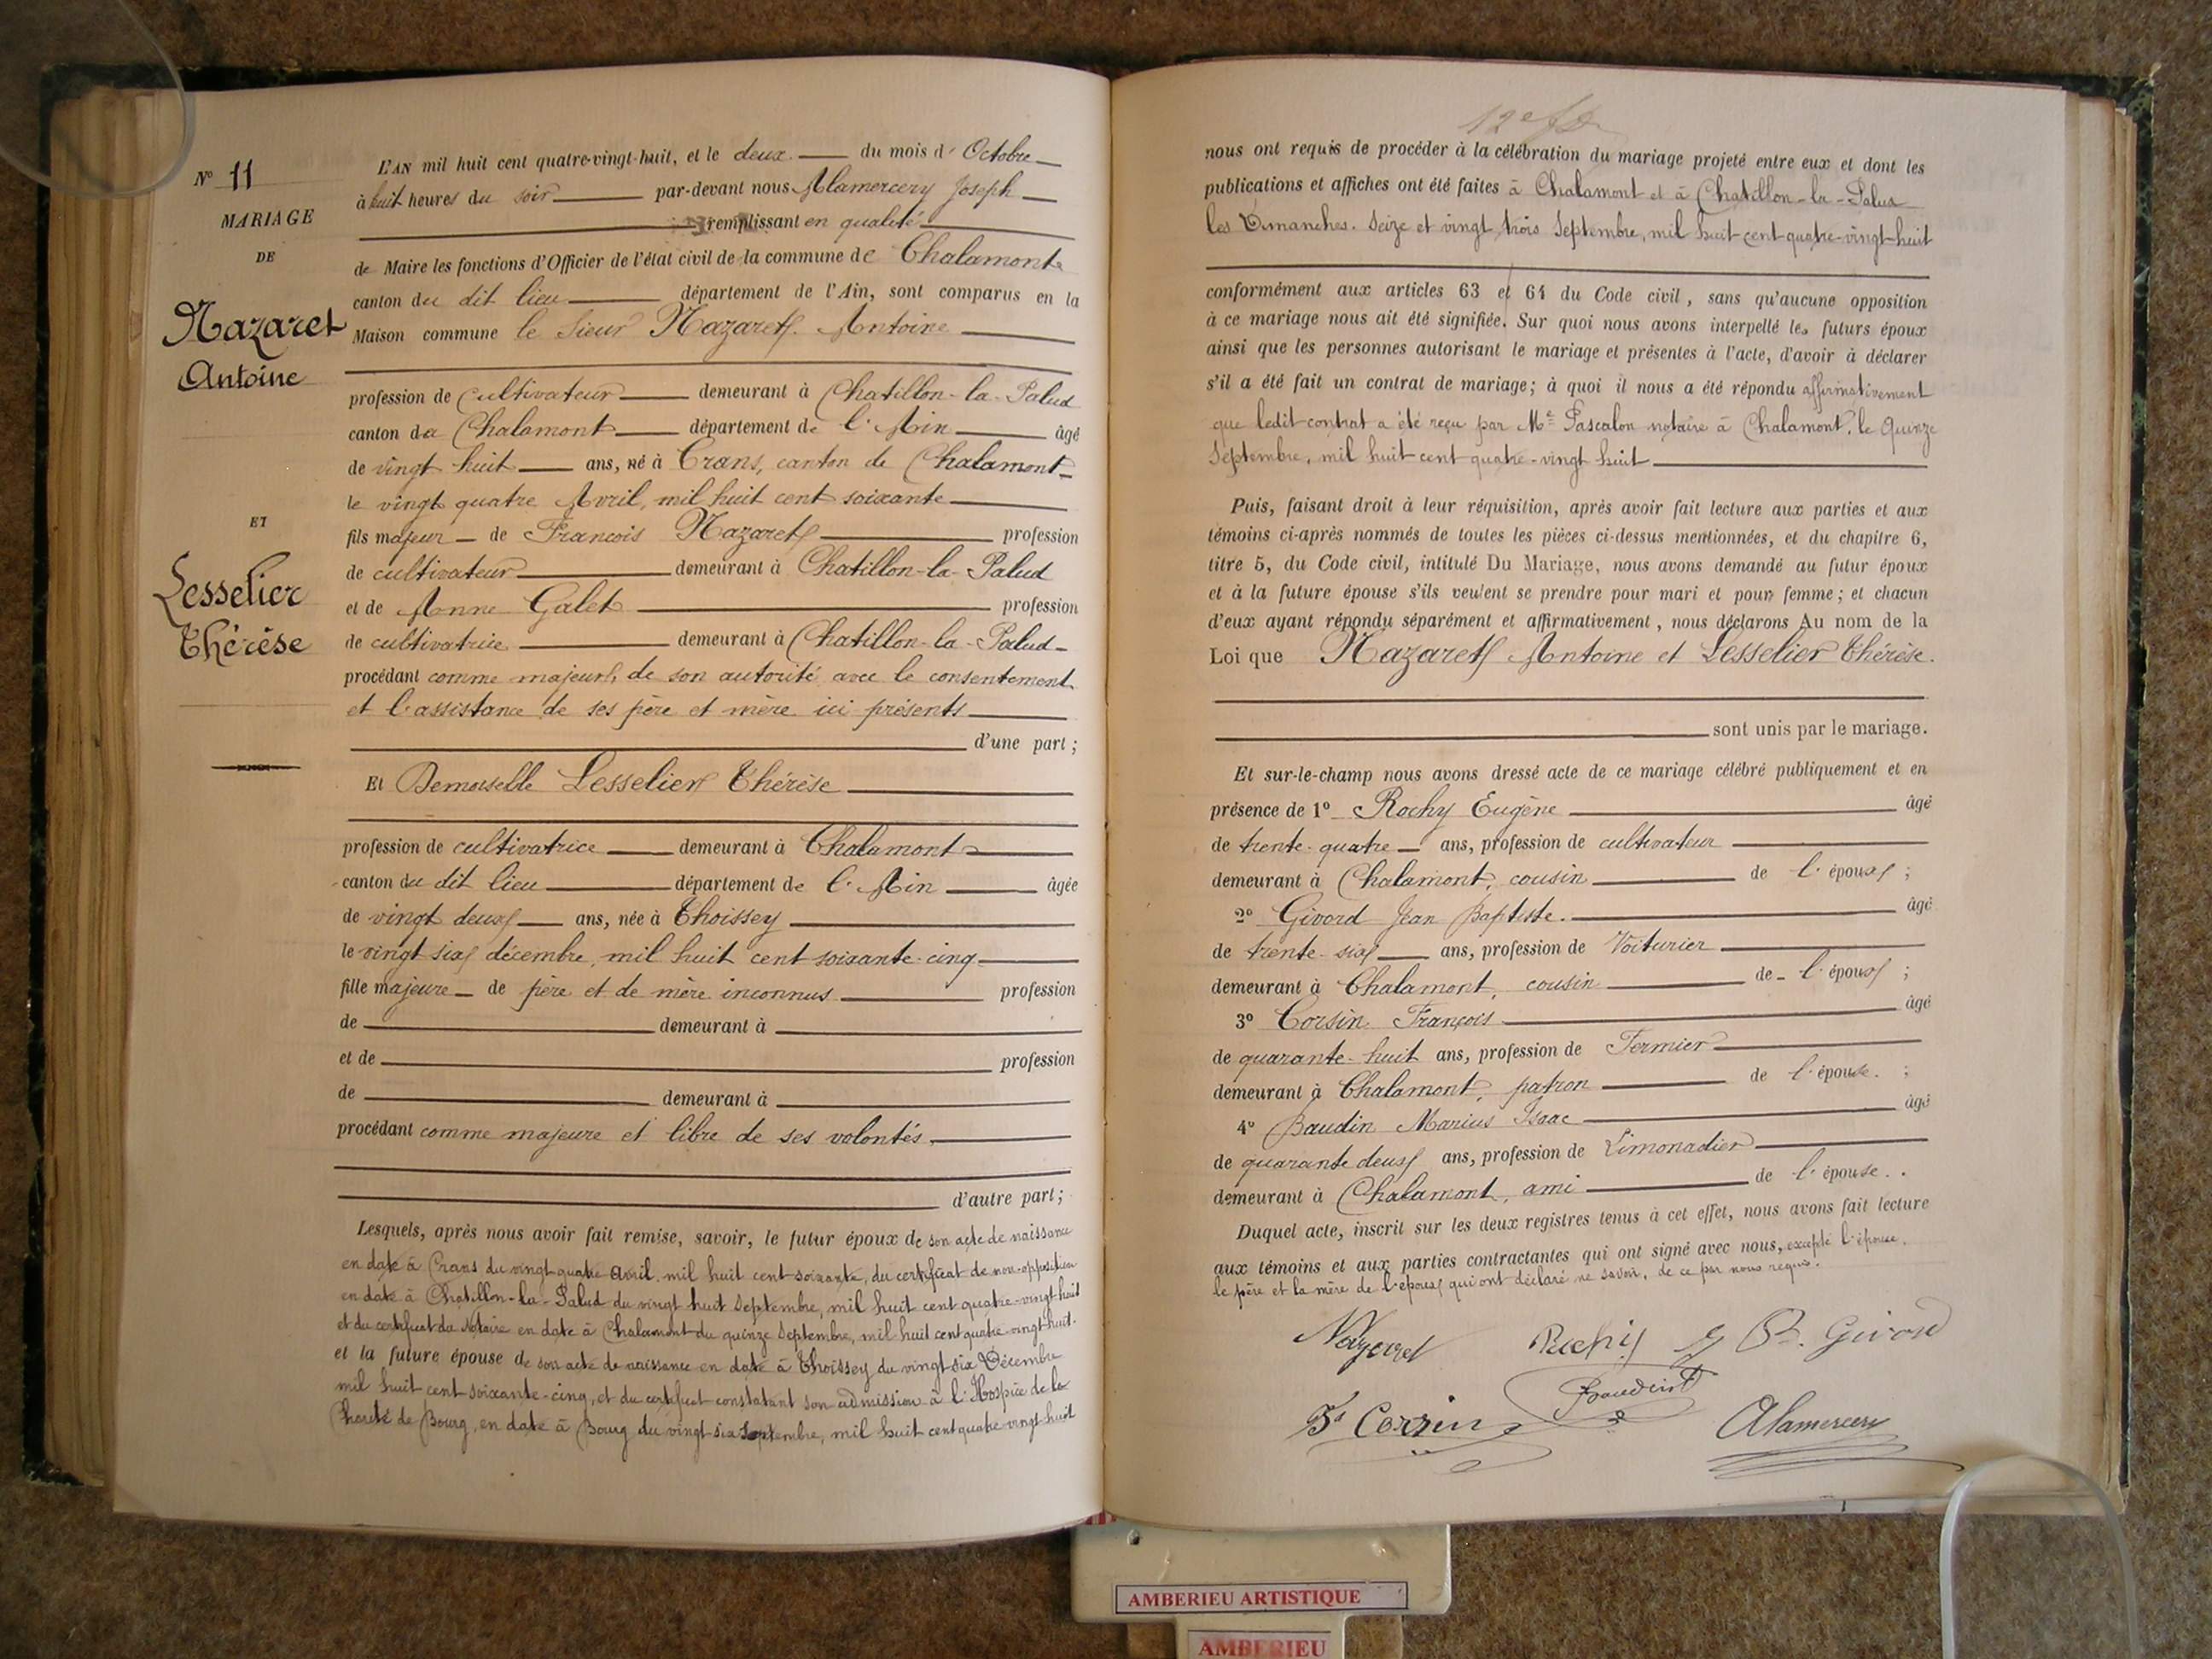 N° 11
MARIAGE
DE
Nazaret
Antoine
ET
Lesselier
Thérèse
L'AN mil huit cent quatre-vingt-huit, et le deux du mois d'Octobre
à huit heures du soir par-devant nous Alamercery Joseph
remplissant en qualité
de Maire les fonctions d'Officier de l'état civil de la commune de Chalamont
canton du dit lieu département de l'Ain, sont comparus en la
Maison commune le Sieur Nazaret Antoine
profession de cultivateur demeurant à Chatillon-la-Palud
canton de Chalamont département de l'Ain âgé
de vingt huit ans, né à Crans, canton de Chalamont
le vingt quatre Avril, mil huit cent soixante
fils majeur de François Nazaret profession
de cultivateur demeurant à Chatillon-la-Palud
et de Anne Galet profession
de cultivatrice demeurant à Chatillon-la-Palud
procédant comme majeur, de son autorité avec le consentement
et l'assistance de ses père et mère ici présents
d'une part ;
Et Demoiselle Lesselier Thérèse
profession de cultivatrice demeurant à Chalamont
canton du dit lieu département de l'Ain âgée
de vingt deux ans, née à Thoissey
le vingt six décembre, mil huit cent soixante-cinq
fille majeure de père et de mère inconnus profession
de demeurant à
et de profession
de demeurant à
procédant comme majeure et libre de ses volontés
d'autre part ;
Lesquels, après nous avoir fait remise, savoir, le futur époux de son acte de naissance
en date à Crans du vingt quatre Avril, mil huit cent soixante, du certificat de non-opposition
en date à Chatillon-la-Palud du vingt huit Septembre, mil huit cent quatre-vingt-huit
et du certificat du Notaire en date à Chalamont du quinze Septembre, mil huit cent quatre-vingt-huit.
et la future épouse de son acte de naissance en date à Thoissey du vingt six Décembre
mil huit cent soixante-cinq, et du certificat constatant son admission à l'Hospice de la
Charité de Bourg, en date à Bourg du vingt-six Septembre, mil huit cent quatre-vingt-huit
nous ont requis de procéder à la célébration du mariage projeté entre eux et dont les
publications et affiches ont été faites à Chalamont et à Chatillon-la-Palud
les Dimanches. Seize et vingt trois Septembre, mil huit cent quatre-vingt-huit
conformément aux articles 63 et 64 du Code civil, sans qu'aucune opposition
à ce mariage nous ait été signifiée. Sur quoi nous avons interpellé les futurs époux
ainsi que les personnes autorisant le mariage et présentes à l'acte, d'avoir à déclarer
s'il a été fait un contrat de mariage ; à quoi il nous a été répondu affirmativement
que ledit contrat a été reçu par Me Pascalon notaire à Chalamont, le Quinze
Septembre, mil huit cent quatre-vingt huit
Puis, faisant droit à leur réquisition, après avoir fait lecture aux parties et aux
témoins ci-après nommés de toutes les pièces ci-dessus mentionnées, et du chapitre 6,
titre 5, du Code civil, intitulé Du Mariage, nous avons demandé au futur époux
et à la future épouse s'ils veulent se prendre pour mari et pour femme ; et chacun
d'eux ayant répondu séparément et affirmativement, nous déclarons Au nom de la
Loi que Nazaret Antoine et Lesselier Thérèse.
sont unis par le mariage.
Et sur-le-champ nous avons dressé acte de ce mariage célébré publiquement et en
présence de 1° Rochy Eugène âgé
de trente-quatre ans, profession de cultivateur
demeurant à Chalamont, cousin de l'époux ;
2° Givord Jean Baptiste. âgé
de trente-six ans, profession de Voiturier
demeurant à Chalamont, cousin de l'époux ;
3° Corsin François âgé
de quarante-huit ans, profession de Fermier
demeurant à Chalamont, patron de l'épouse. ;
4° Baudin Marius Isaac âgé
de quarante deux ans, profession de Limonadier
demeurant à Chalamont, ami de l'épouse.
Duquel acte, inscrit sur les deux registres tenus à cet effet, nous avons fait lecture
aux témoins et aux parties contractantes qui ont signé avec nous, excepté l'épouse.
le père et la mère de l'époux qui ont déclaré ne savoir, de ce par nous requis.
Nazaret Rochy J B. Givord
Baudin
Fs Corsin Alamercery
AMBERIEU ARTISTIQUE
AMBERIEU